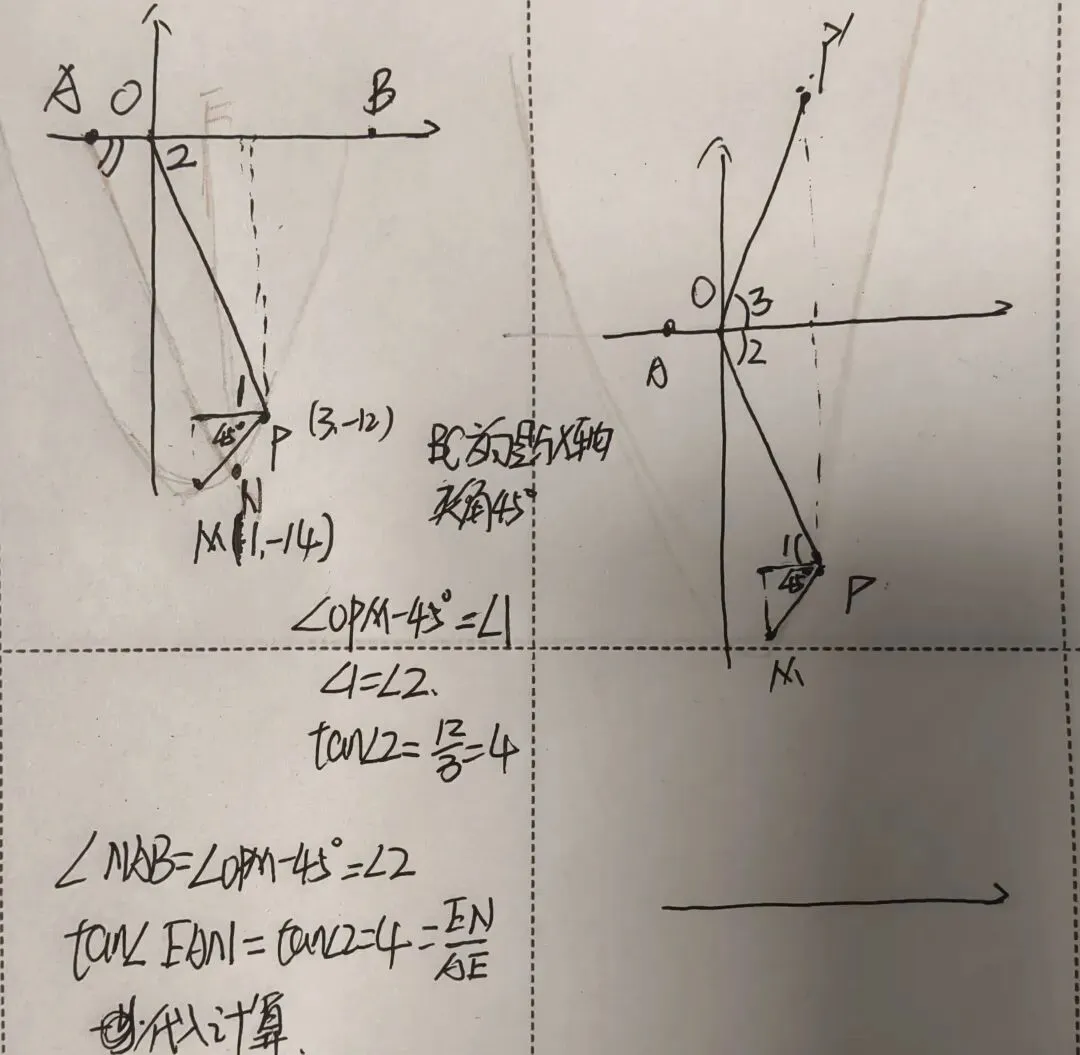 A O B
2
1
45°
P (3,-12)
N
M(1,-14)
BC方向是与X轴
夹角45°
∠OPM-45°=∠1
∠1=∠2.
tan∠2=12/3=4
∠NAB=∠OPM-45°=∠2
tan∠EAN=tan∠2=4=EN/AE
代入计算.
P'
O 3
2
A
1
45°
P
M